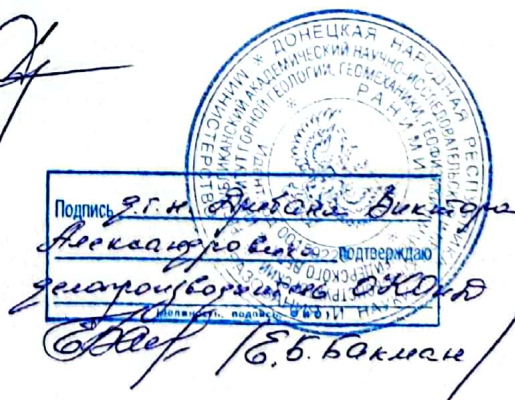 ДОНЕЦКАЯ НАРОДНАЯ РЕСП
МИНИСТЕРСТВО
РЕСПУБЛИКАНСКИЙ АКАДЕМИЧЕСКИЙ НАУЧНО-ИССЛЕДОВАТЕЛЬСКИЙ
ИНСТИТУТ ГОРНОЙ ГЕОЛОГИИ, ГЕОМЕХАНИКИ, ГЕОФИЗИКИ
РАНИМИ
Подпись д.г.н. Дрибана Виктора
Александровича подтверждаю
делопроизводитель ОКОиД
должность, подпись, Ф.И.О.
/Е.Б. Бакман